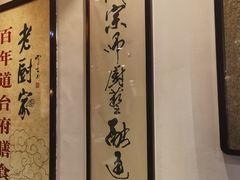 老厨家
百年道台府膳食
宗师厨艺融通